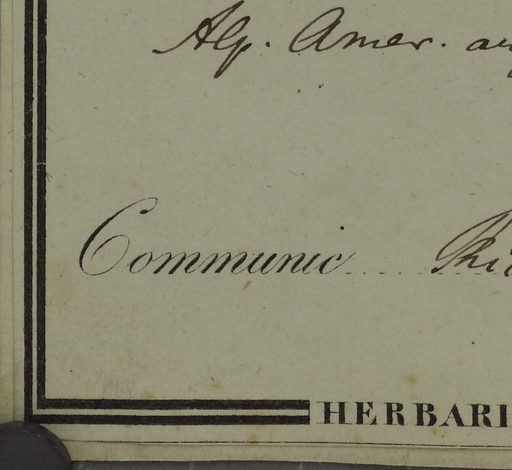 Alp. Amer.
Communic
HERBARI